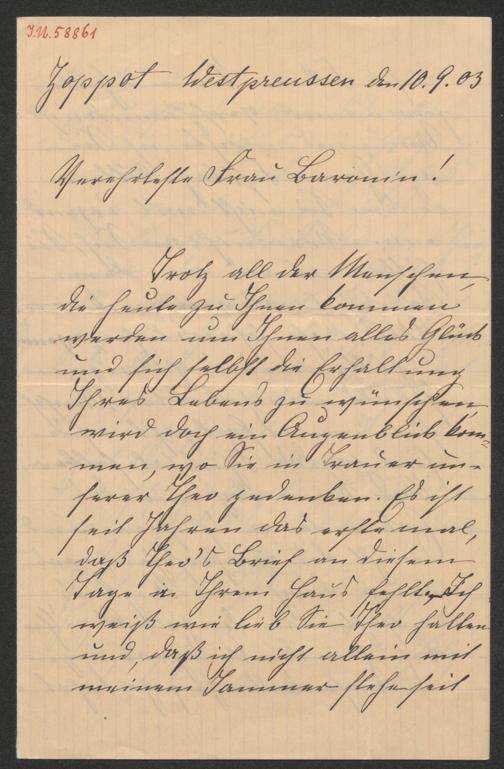 I.N. 58861
Zoppot Westpreussen den 10.9.03
Verehrteste Frau Baronin!
Trotz all der Menschen,
die heute zu Ihnen kommen
werden um Ihnen alles Glück
und sich selbst die Erhaltung
Ihres Lebens zu wünschen
wird doch ein Augenblick kom-
men, wo Sie in Trauer un-
serer Theo gedenken. Es ist
seit Jahren das erste mal,
daß Theo's Brief an diesem
Tage in Ihrem Haus fehlt. Ich
weiß wie lieb Sie Theo hatten
und, daß ich nicht allein mit
meinem Jammer stehe seit